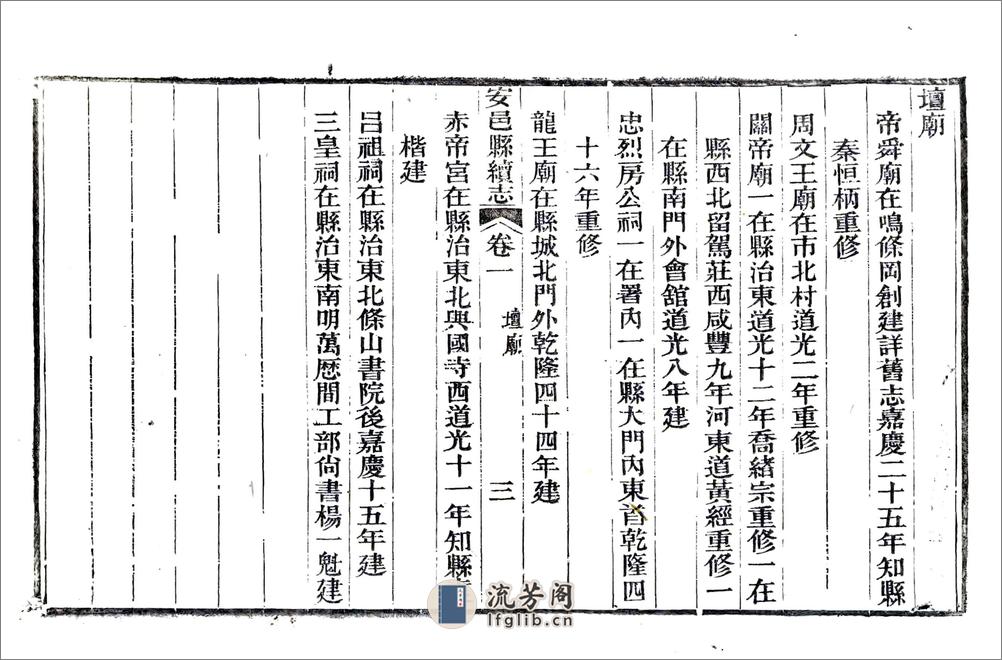 壇廟
帝舜廟在鳴條岡創建詳舊志嘉慶二十五年知縣
秦恒柄重修
周文王廟在市北村道光二年重修
關帝廟一在縣治東道光十二年喬緒宗重修一在
縣西北留駕莊西咸豐九年河東道黃經重修一
在縣南門外會舘道光八年建
忠烈房公祠一在署內一在縣大門內東首乾隆四
十六年重修
龍王廟在縣城北門外乾隆四十四年建
安邑縣續志 卷一 壇廟 三
赤帝宮在縣治東北興國寺西道光十一年知縣
楷建
呂祖祠在縣治東北條山書院後嘉慶十五年建
三皇祠在縣治東南明萬厯間工部尙書楊一魁建
流芳阁
lfglib.cn